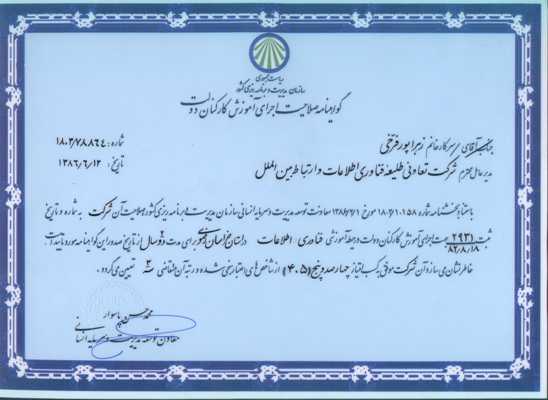 ریاست جمهوری
سازمان مدیریت و برنامه ریزی کشور
گواهینامه صلاحیت اجرای آموزش کارکنان دولت
شماره: ۱۸۰۳/۷۸۸۶۴
تاریخ: ۱۳۸۶/۶/۱۲
جناب آقای / سرکار خانم زهرا پور فرخی
مدیر عامل محترم شرکت تعاونی طلیعه فناوری اطلاعات و ارتباط بین الملل
با استناد بخشنامه شماره ۱۸۰۳/۱۰۱۵۸ مورخ معاونت توسعه مدیریت و سرمایه انسانی سازمان مدیریت و برنامه ریزی کشور صلاحیت آن شرکت به شماره و تاریخ
ثبت ۲۹۳۱ ۸۲/۸/۱۸ جهت اجرای آموزش کارکنان دولت در حیطه آموزشی فناوری اطلاعات در استان خراسان رضوی برای مدت دو سال از تاریخ صدور این گواهینامه مورد تایید است
خاطر نشان می سازد آن شرکت موفق به کسب امتیاز چهارصد و پنج (۴۰۵) از شاخص های اعتبار سنجی شده و رتبه آن متقاضی ۲ تعیین می گردد.
محمد حسن پاسوار
معاون توسعه مدیریت و سرمایه انسانی